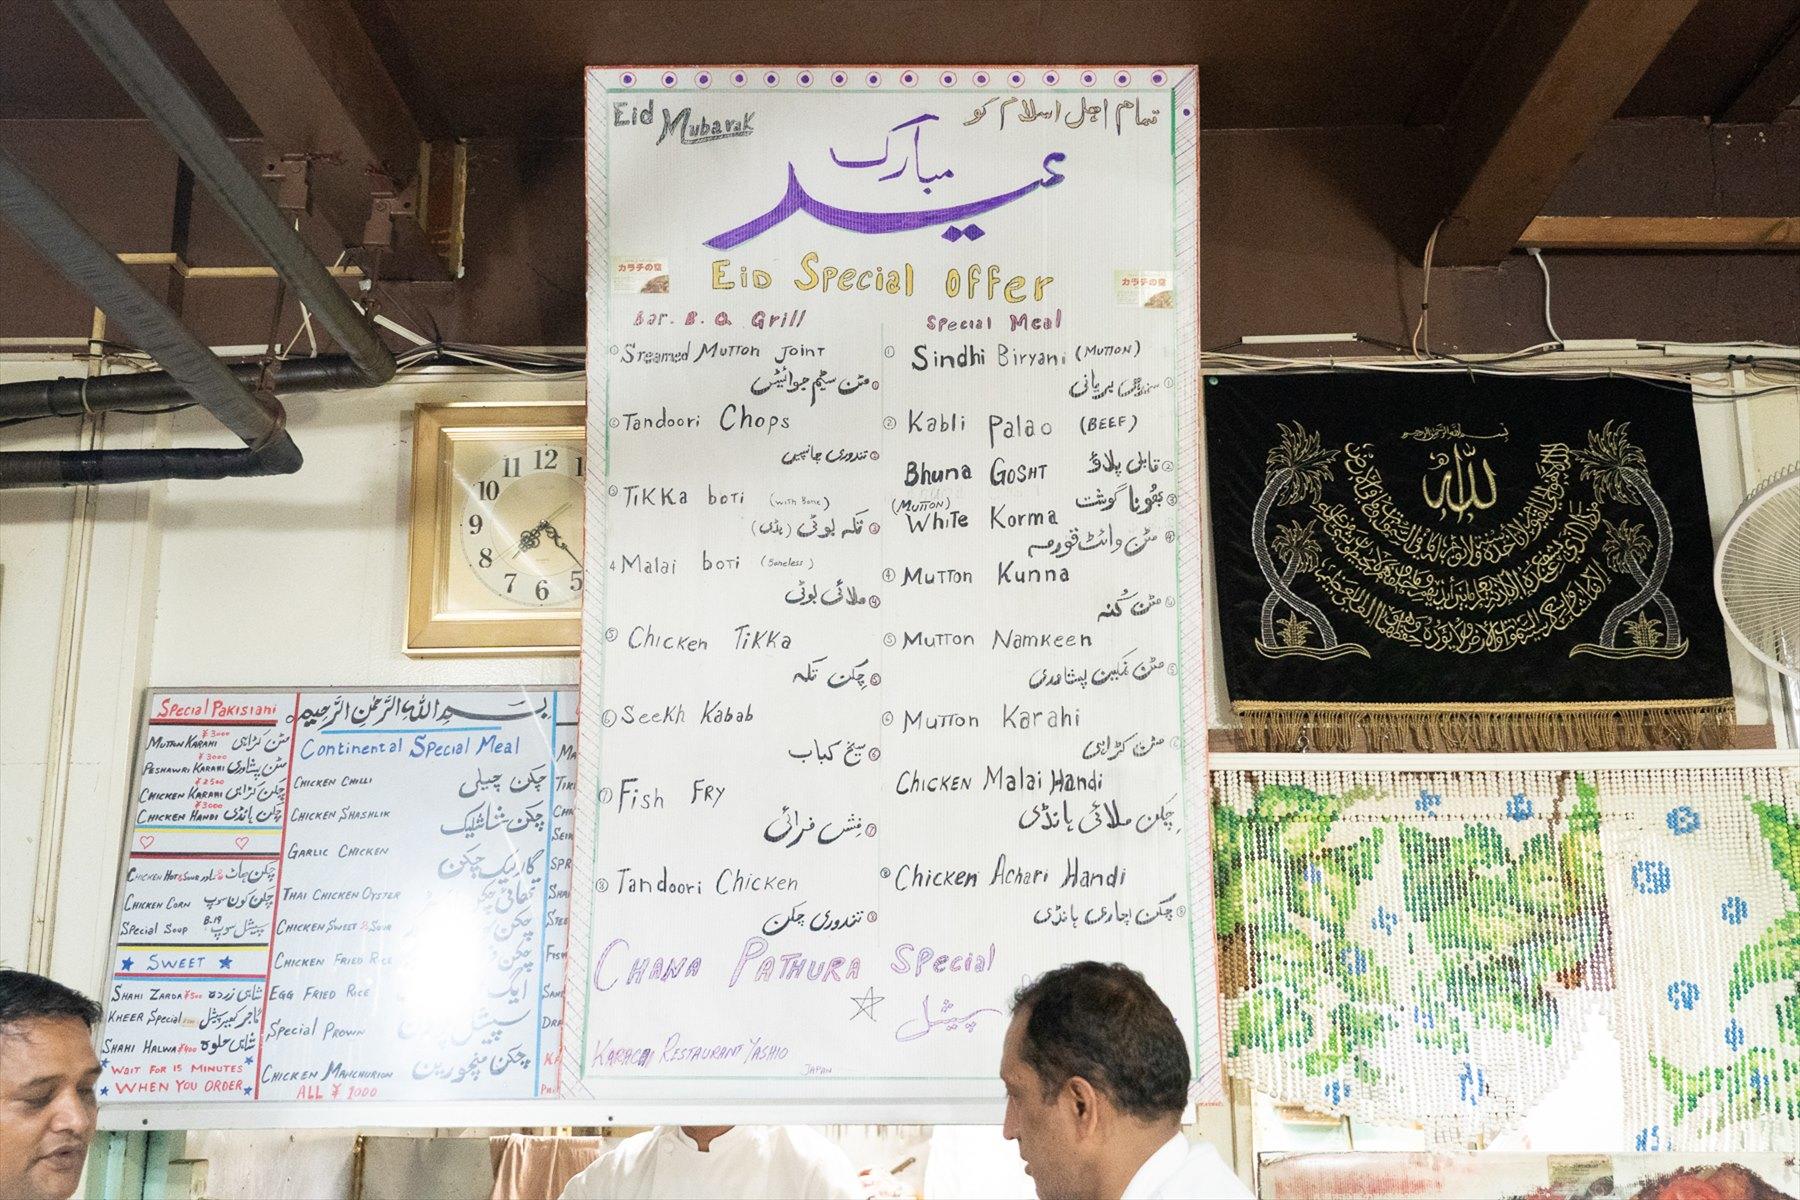 Eid Mubarak
تمام اہل اسلام کو
عید مبارک
カラチの空
カラチの空
Eid Special Offer
Bar. B. Q Grill
① Steamed Mutton Joint
مٹن سٹیم جوائینٹ ①
② Tandoori Chops
تندوری چانپیں ②
③ Tikka boti (with Bone)
تکہ بوٹی (ہڈی) ③
4 Malai boti (Boneless)
ملائی بوٹی ④
⑤ Chicken Tikka
چکن تکہ ⑤
⑥ Seekh Kabab
سیخ کباب ⑥
⑦ Fish Fry
فش فرائی ⑦
⑧ Tandoori Chicken
تندوری چکن ⑧
Special Meal
① Sindhi Biryani (Mutton)
سندھی بریانی ①
② Kabli Palao (BEEF)
قابلی پلاؤ ②
Bhuna Gosht
(Mutton)
بھونا گوشت ③
White Korma
مٹن وائٹ قورمہ ④
④ Mutton Kunna
مٹن کُنہ
⑤ Mutton Namkeen
مٹن نمکین پشاوری ⑤
⑥ Mutton Karahi
مٹن کڑاہی
Chicken Malai Handi
چکن ملائی ہانڈی
⑧ Chicken Achari Handi
چکن اچاری ہانڈی
Chana Pathura Special
سپیشل
Karachi Restaurant Yashio
JAPAN
Special Pakistani
¥3000
Mutton Karahi مٹن کڑاہی
¥3000
Peshawri Karahi مٹن پشاوری
¥2500
Chicken Karahi چکن کڑاہی
¥3000
Chicken Handi چکن ہانڈی
Chicken Hot & Sour
Chicken Corn چکن کون سوپ
Special Soup B.19 سپیشل سوپ
SWEET
Shahi Zarda ¥500 شاہی زردہ
Kheer Special گاجر کھیر سپیشل
Shahi Halwa ¥400 شاہی حلوہ
WAIT FOR 15 MINUTES
WHEN YOU ORDER
بِسمِ اللہِ الرَّحمٰنِ الرَّحِیمِ
Continental Special Meal
Chicken Chilli چکن چیلی
Chicken Shashlik چکن شاشلیک
Garlic Chicken گارلیک چکن
Thai Chicken Oyster
Chicken Sweet & Sour
Chicken Fried Rice
Egg Fried Rice
Special Prown
Chicken Manchurion چکن منچورین
ALL ¥ 1000
11 12 1
10
9
8
7 6 5
بسم الله الرحمن الرحيم
الله